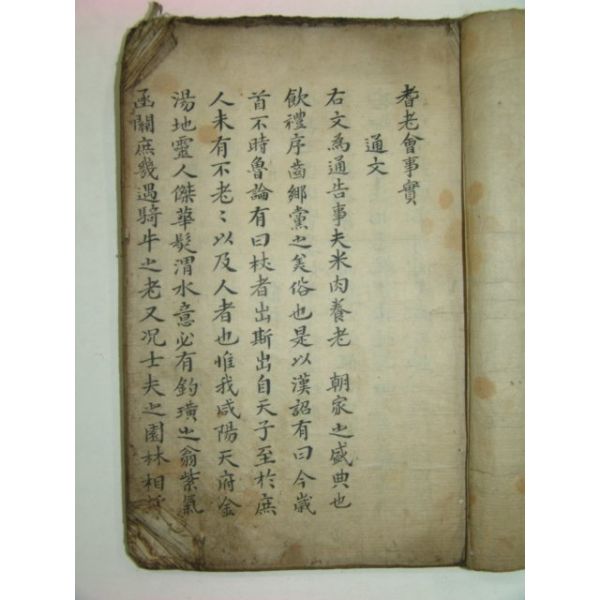 耆老會事實
通文
右文為通告事夫米肉養老 朝家之盛典也
飮禮序齒鄉黨之美俗也是以漢詔有曰今歲
首不時魯論有曰杖者出斯出自天子至於庶
人未有不老〻以及人者也惟我咸陽天府金
湯地靈人傑華髮渭水意必有釣璜之翁紫氣
函關庶幾遇騎牛之老又况士夫之園林相